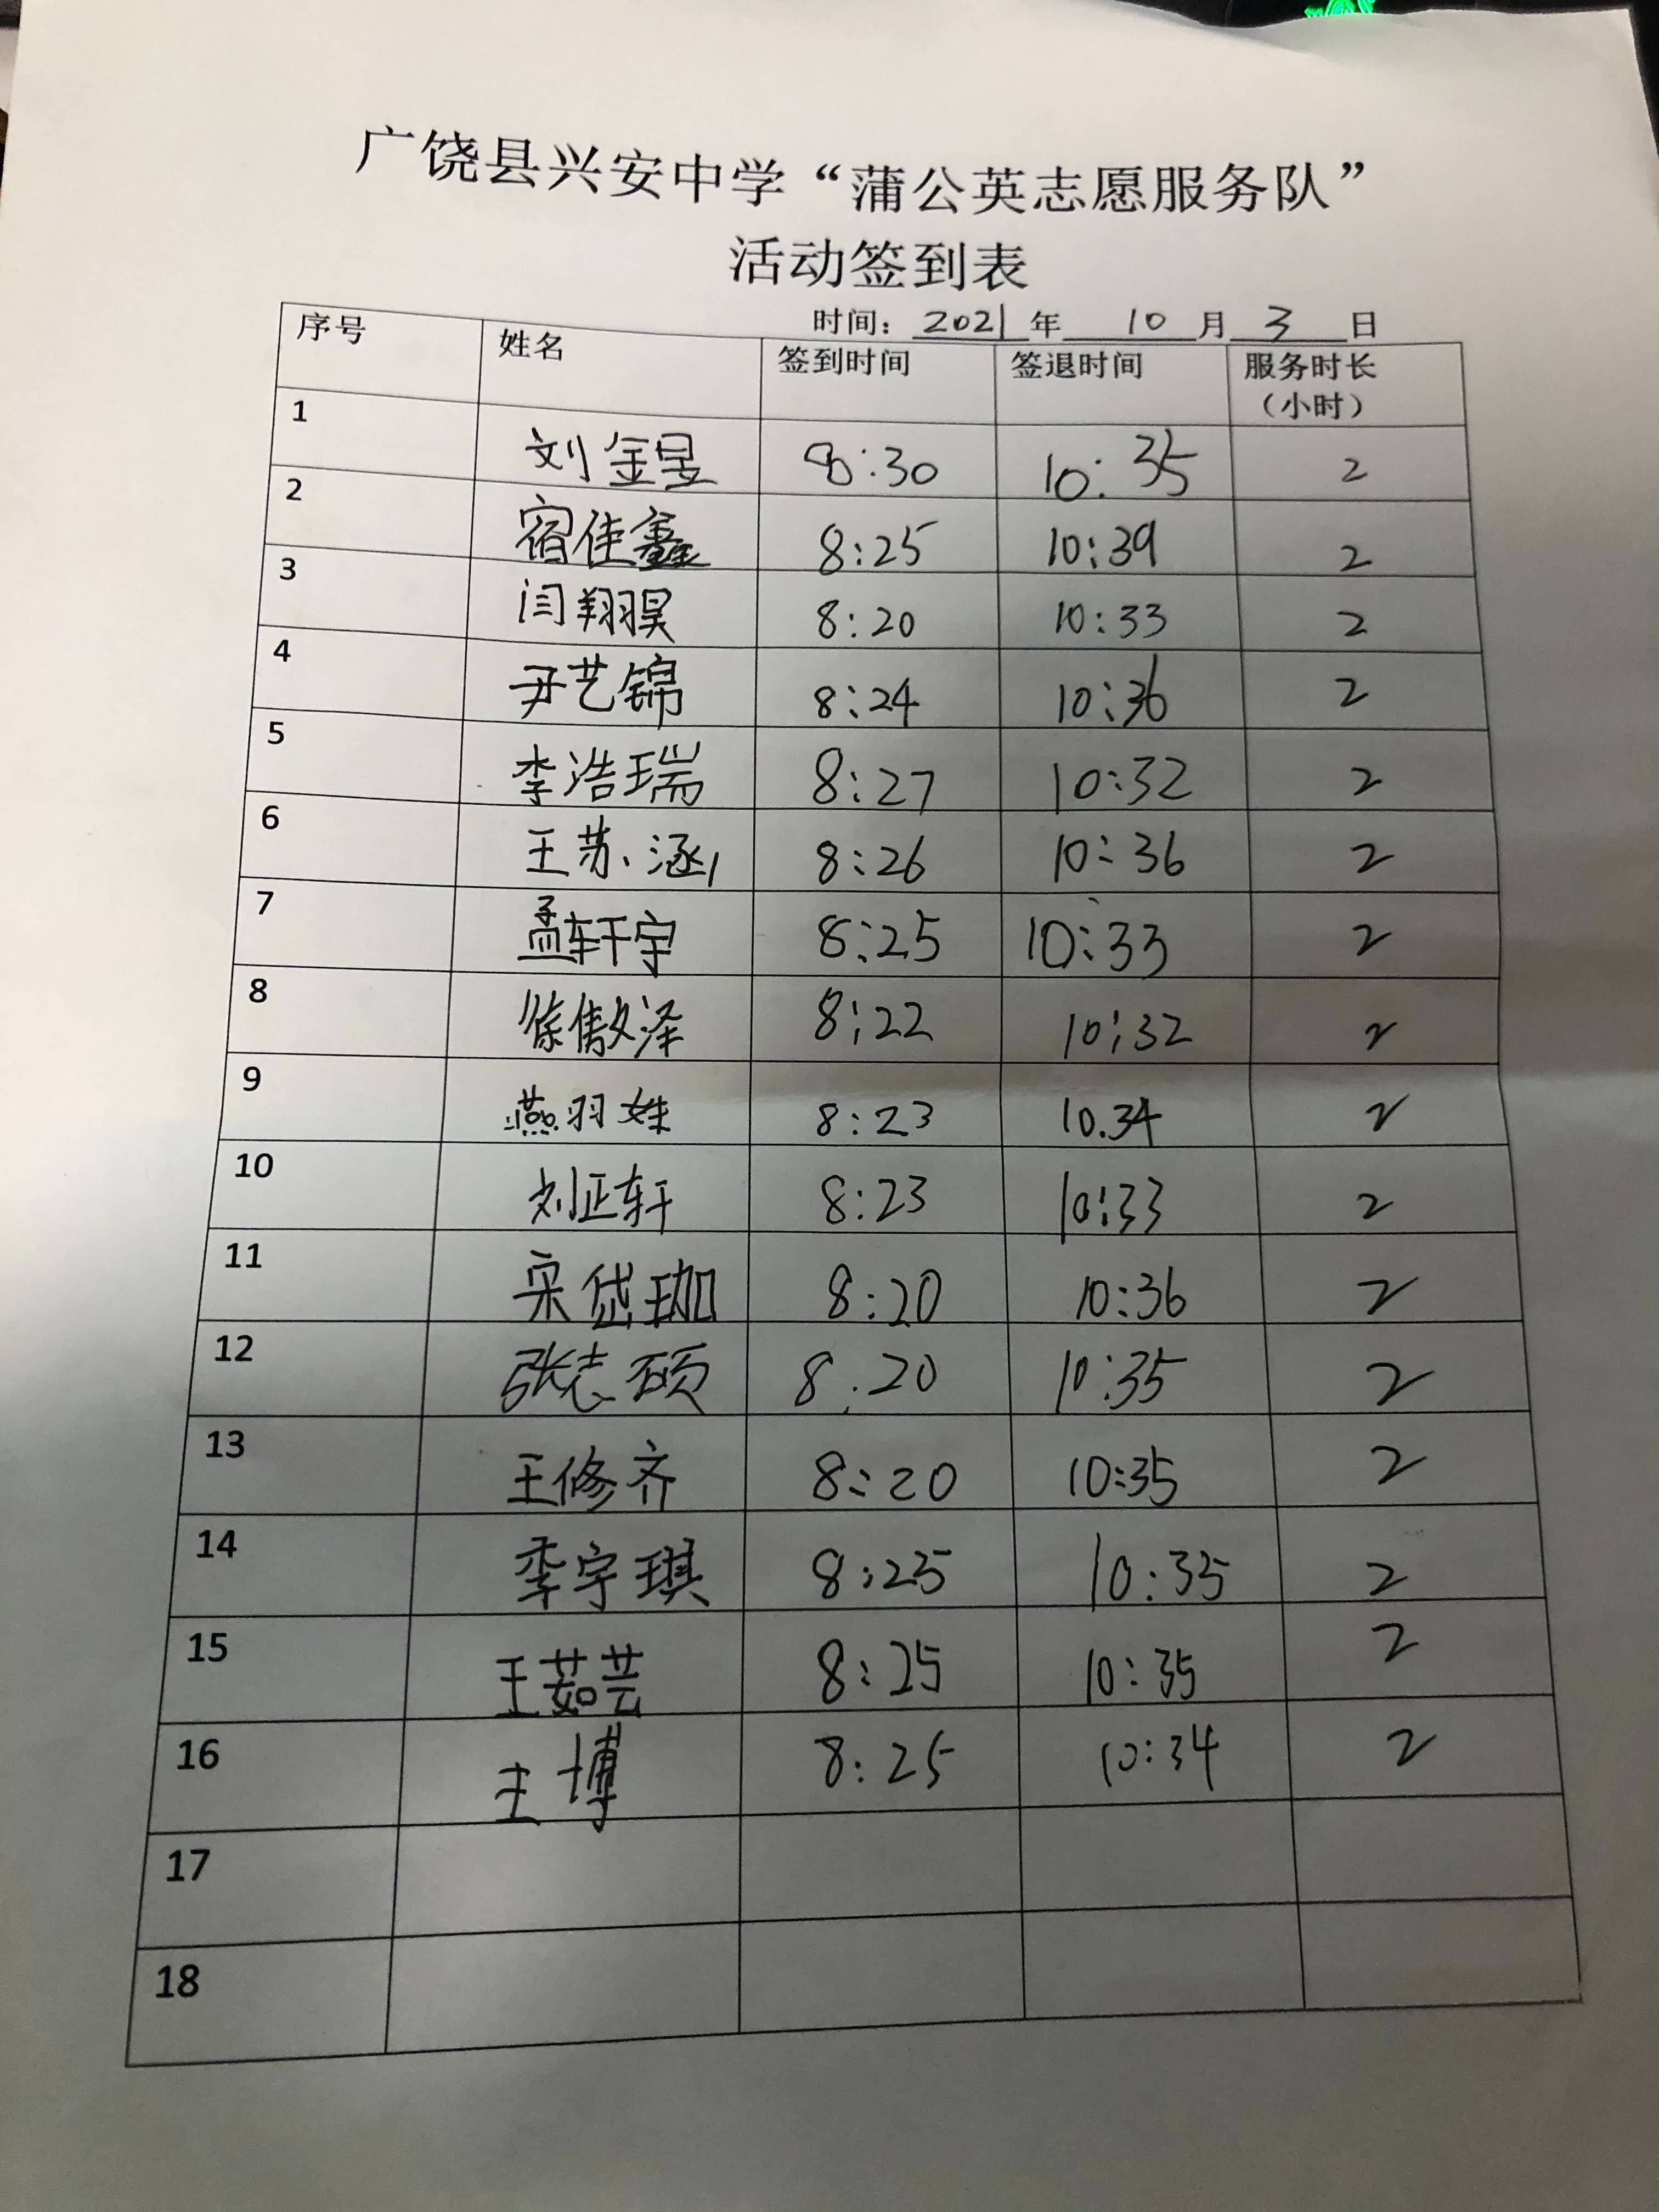 广饶县兴安中学“蒲公英志愿服务队”
活动签到表
时间：2021年 10月 3日
序号 姓名 签到时间 签退时间 服务时长（小时）
1 刘金昱 8:30 10:35 2
2 宿佳鑫 8:25 10:39 2
3 闫翔昊 8:20 10:33 2
4 尹艺锦 8:24 10:36 2
5 李浩瑞 8:27 10:32 2
6 王苏涵 8:26 10:36 2
7 孟轩宇 8:25 10:33 2
8 徐傲泽 8:22 10:32 2
9 燕羽姝 8:23 10.34 2
10 刘正轩 8:23 10:33 2
11 宋岱珈 8:20 10:36 2
12 张志硕 8:20 10:35 2
13 王修齐 8:20 10:35 2
14 李宇琪 8:25 10:35 2
15 王茹芸 8:25 10:35 2
16 王博 8:25 10:34 2
17
18